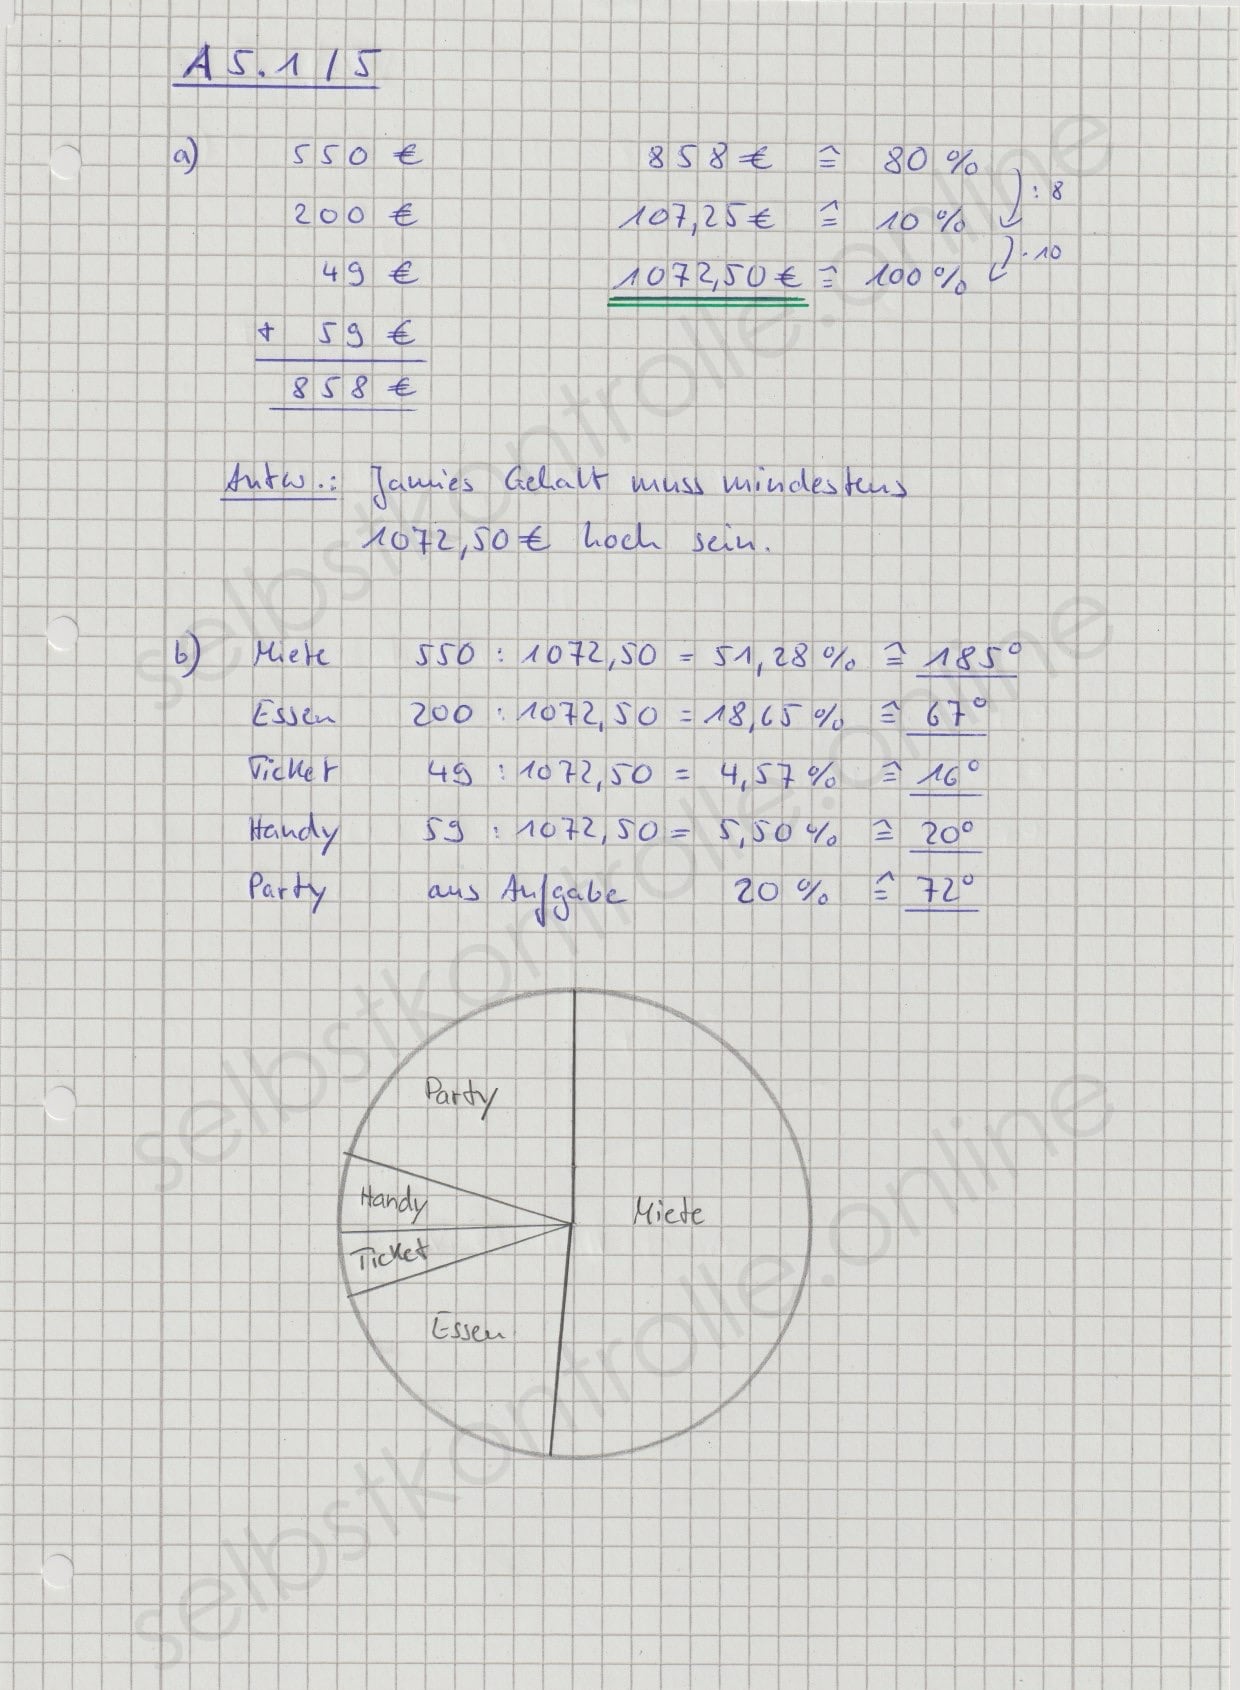 A 5.1 / 5
a) 550 € 858 € ≙ 80 %
: 8
200 € 107,25 € ≙ 10 %
· 10
49 € 1072,50 € ≙ 100 %
+ 59 €
858 €
Antw.: Jamies Gehalt muss mindestens
1072,50 € hoch sein.
b) Miete 550 : 1072,50 = 51,28 % ≙ 185°
Essen 200 : 1072,50 = 18,65 % ≙ 67°
Ticket 49 : 1072,50 = 4,57 % ≙ 16°
Handy 59 : 1072,50 = 5,50 % ≙ 20°
Party aus Aufgabe 20 % ≙ 72°
Party
Handy
Miete
Ticket
Essen
selbstkontrolle.online
selbstkontrolle.online
selbstkontrolle.online